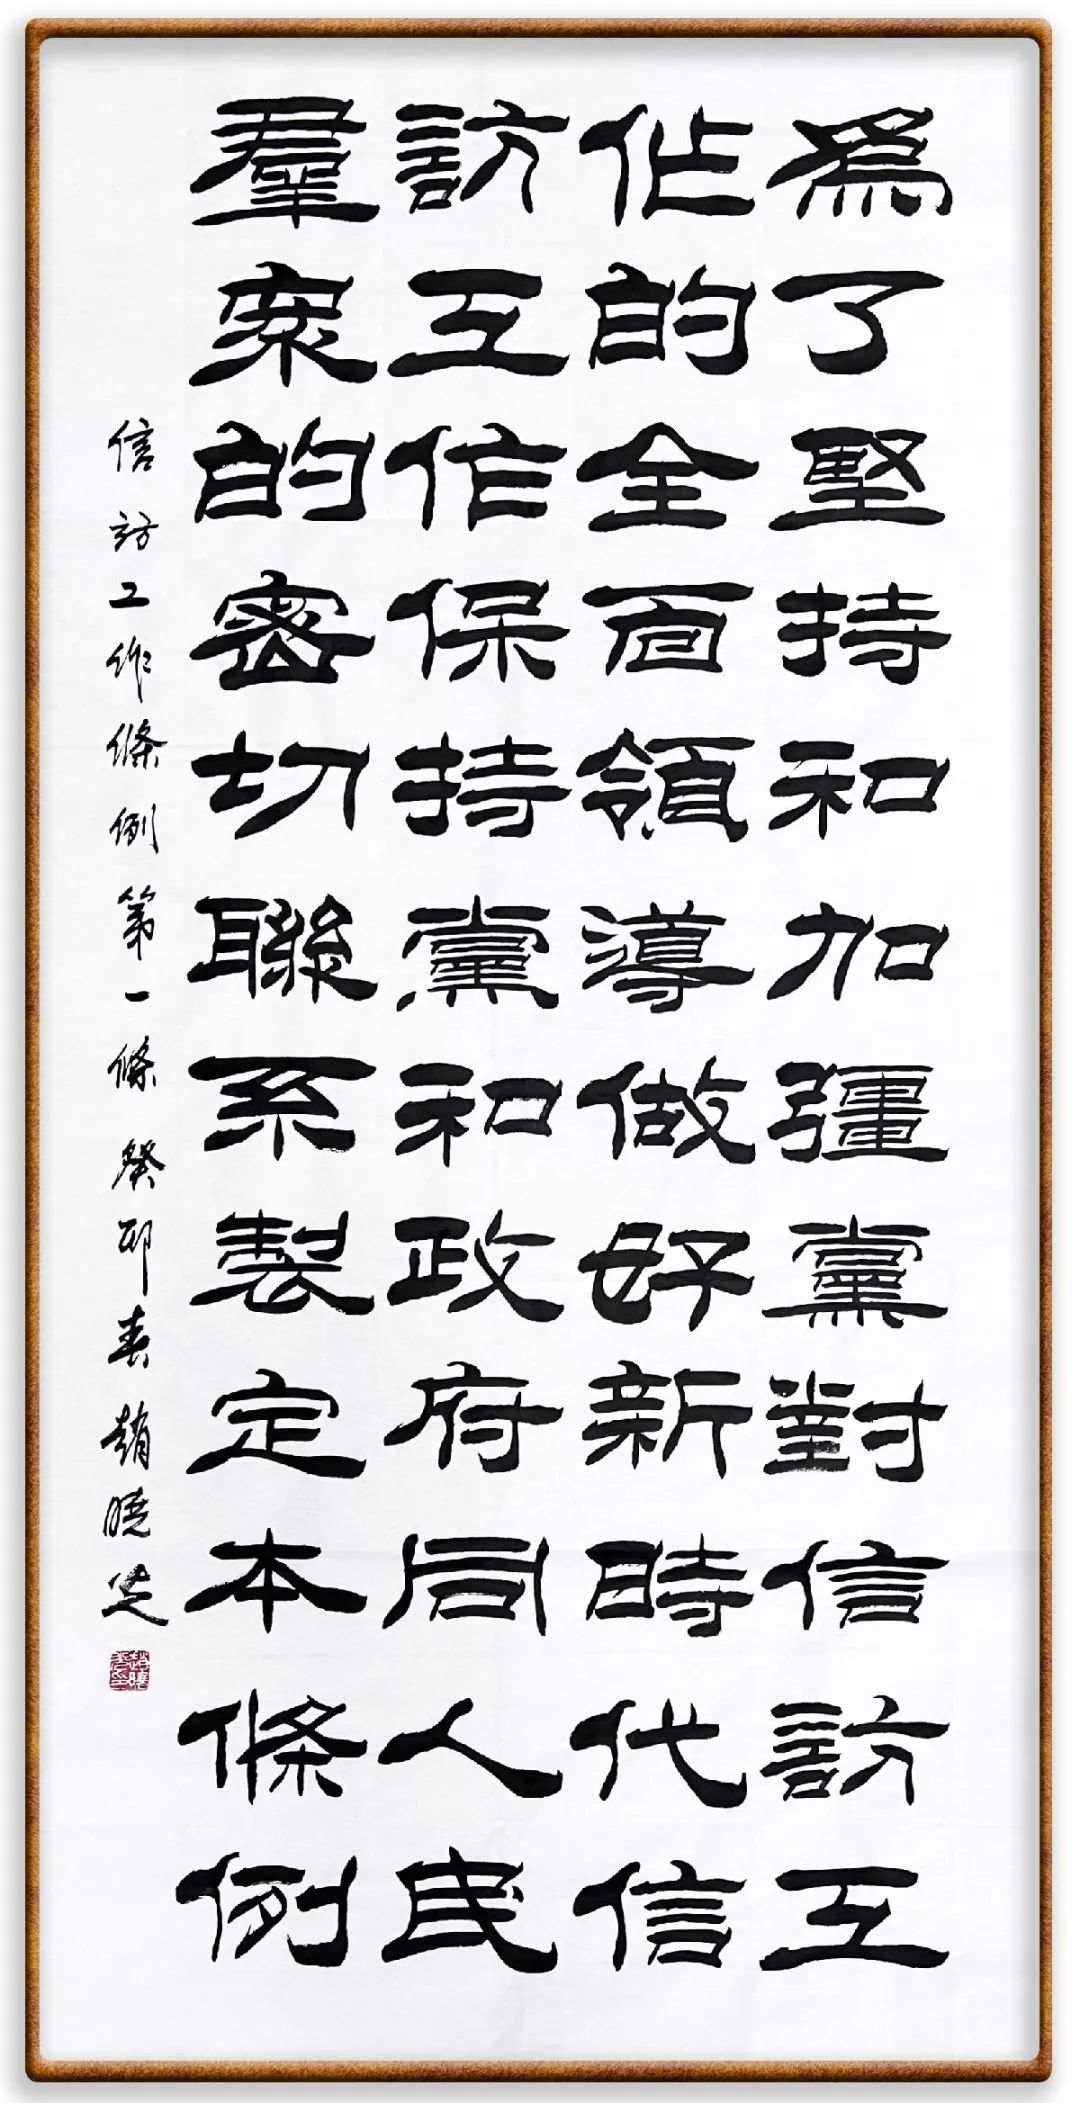 爲了堅持和加彊黨對信訪工
作的全面領導做好新時代信
訪工作保持黨和政府同人民
羣衆的密切聯系製定本條例
信訪工作條例第一條 癸卯春趙曉